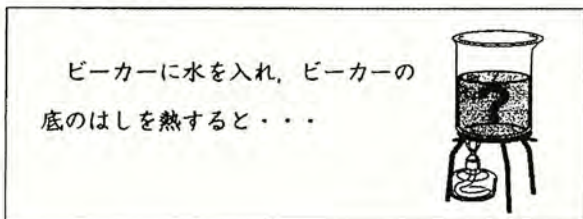 ビーカーに水を入れ，ビーカーの
底のはしを熱すると・・・
?